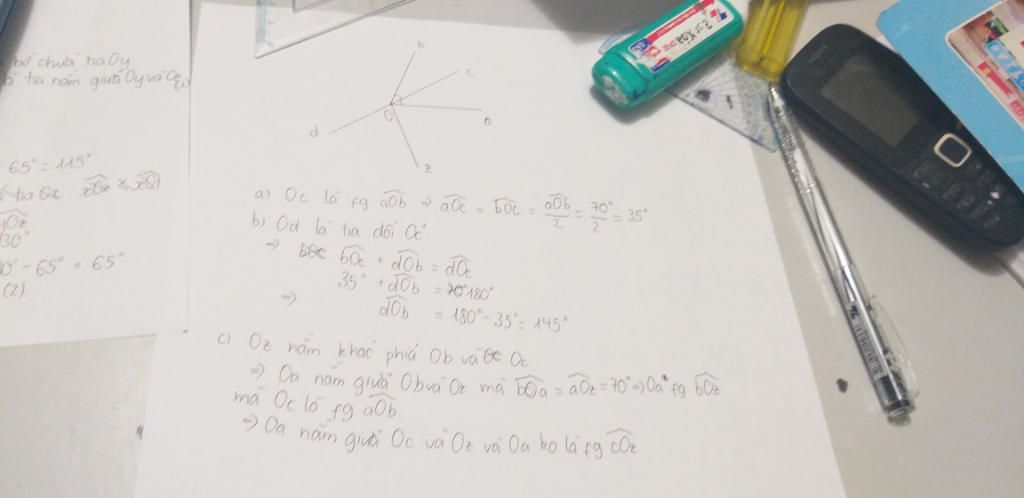 bờ chứa tia Oy
tia nằm giữa Oy và Oz
65° = 115°
tia Ox xOz
yOz
30°
0° - 65° = 65°
(2)
b
c
O
a
d
z
a) Oc là fg aOb ⇒ aOc = bOc = aOb/2 = 70°/2 = 35°
b) Od là tia đối Oc
⇒ bOc + dOb = dOc
35° + dOb = 180°
⇒ dOb = 180° - 35° = 145°
c) Oz nằm khác phía Ob và Oc
⇒ Oa nằm giữa Ob và Oz mà bOa = aOz = 70° ⇒ Oa fg bOz
mà Oc là fg aOb
⇒ Oa nằm giữa Oc và Oz và Oa ko là fg cOz